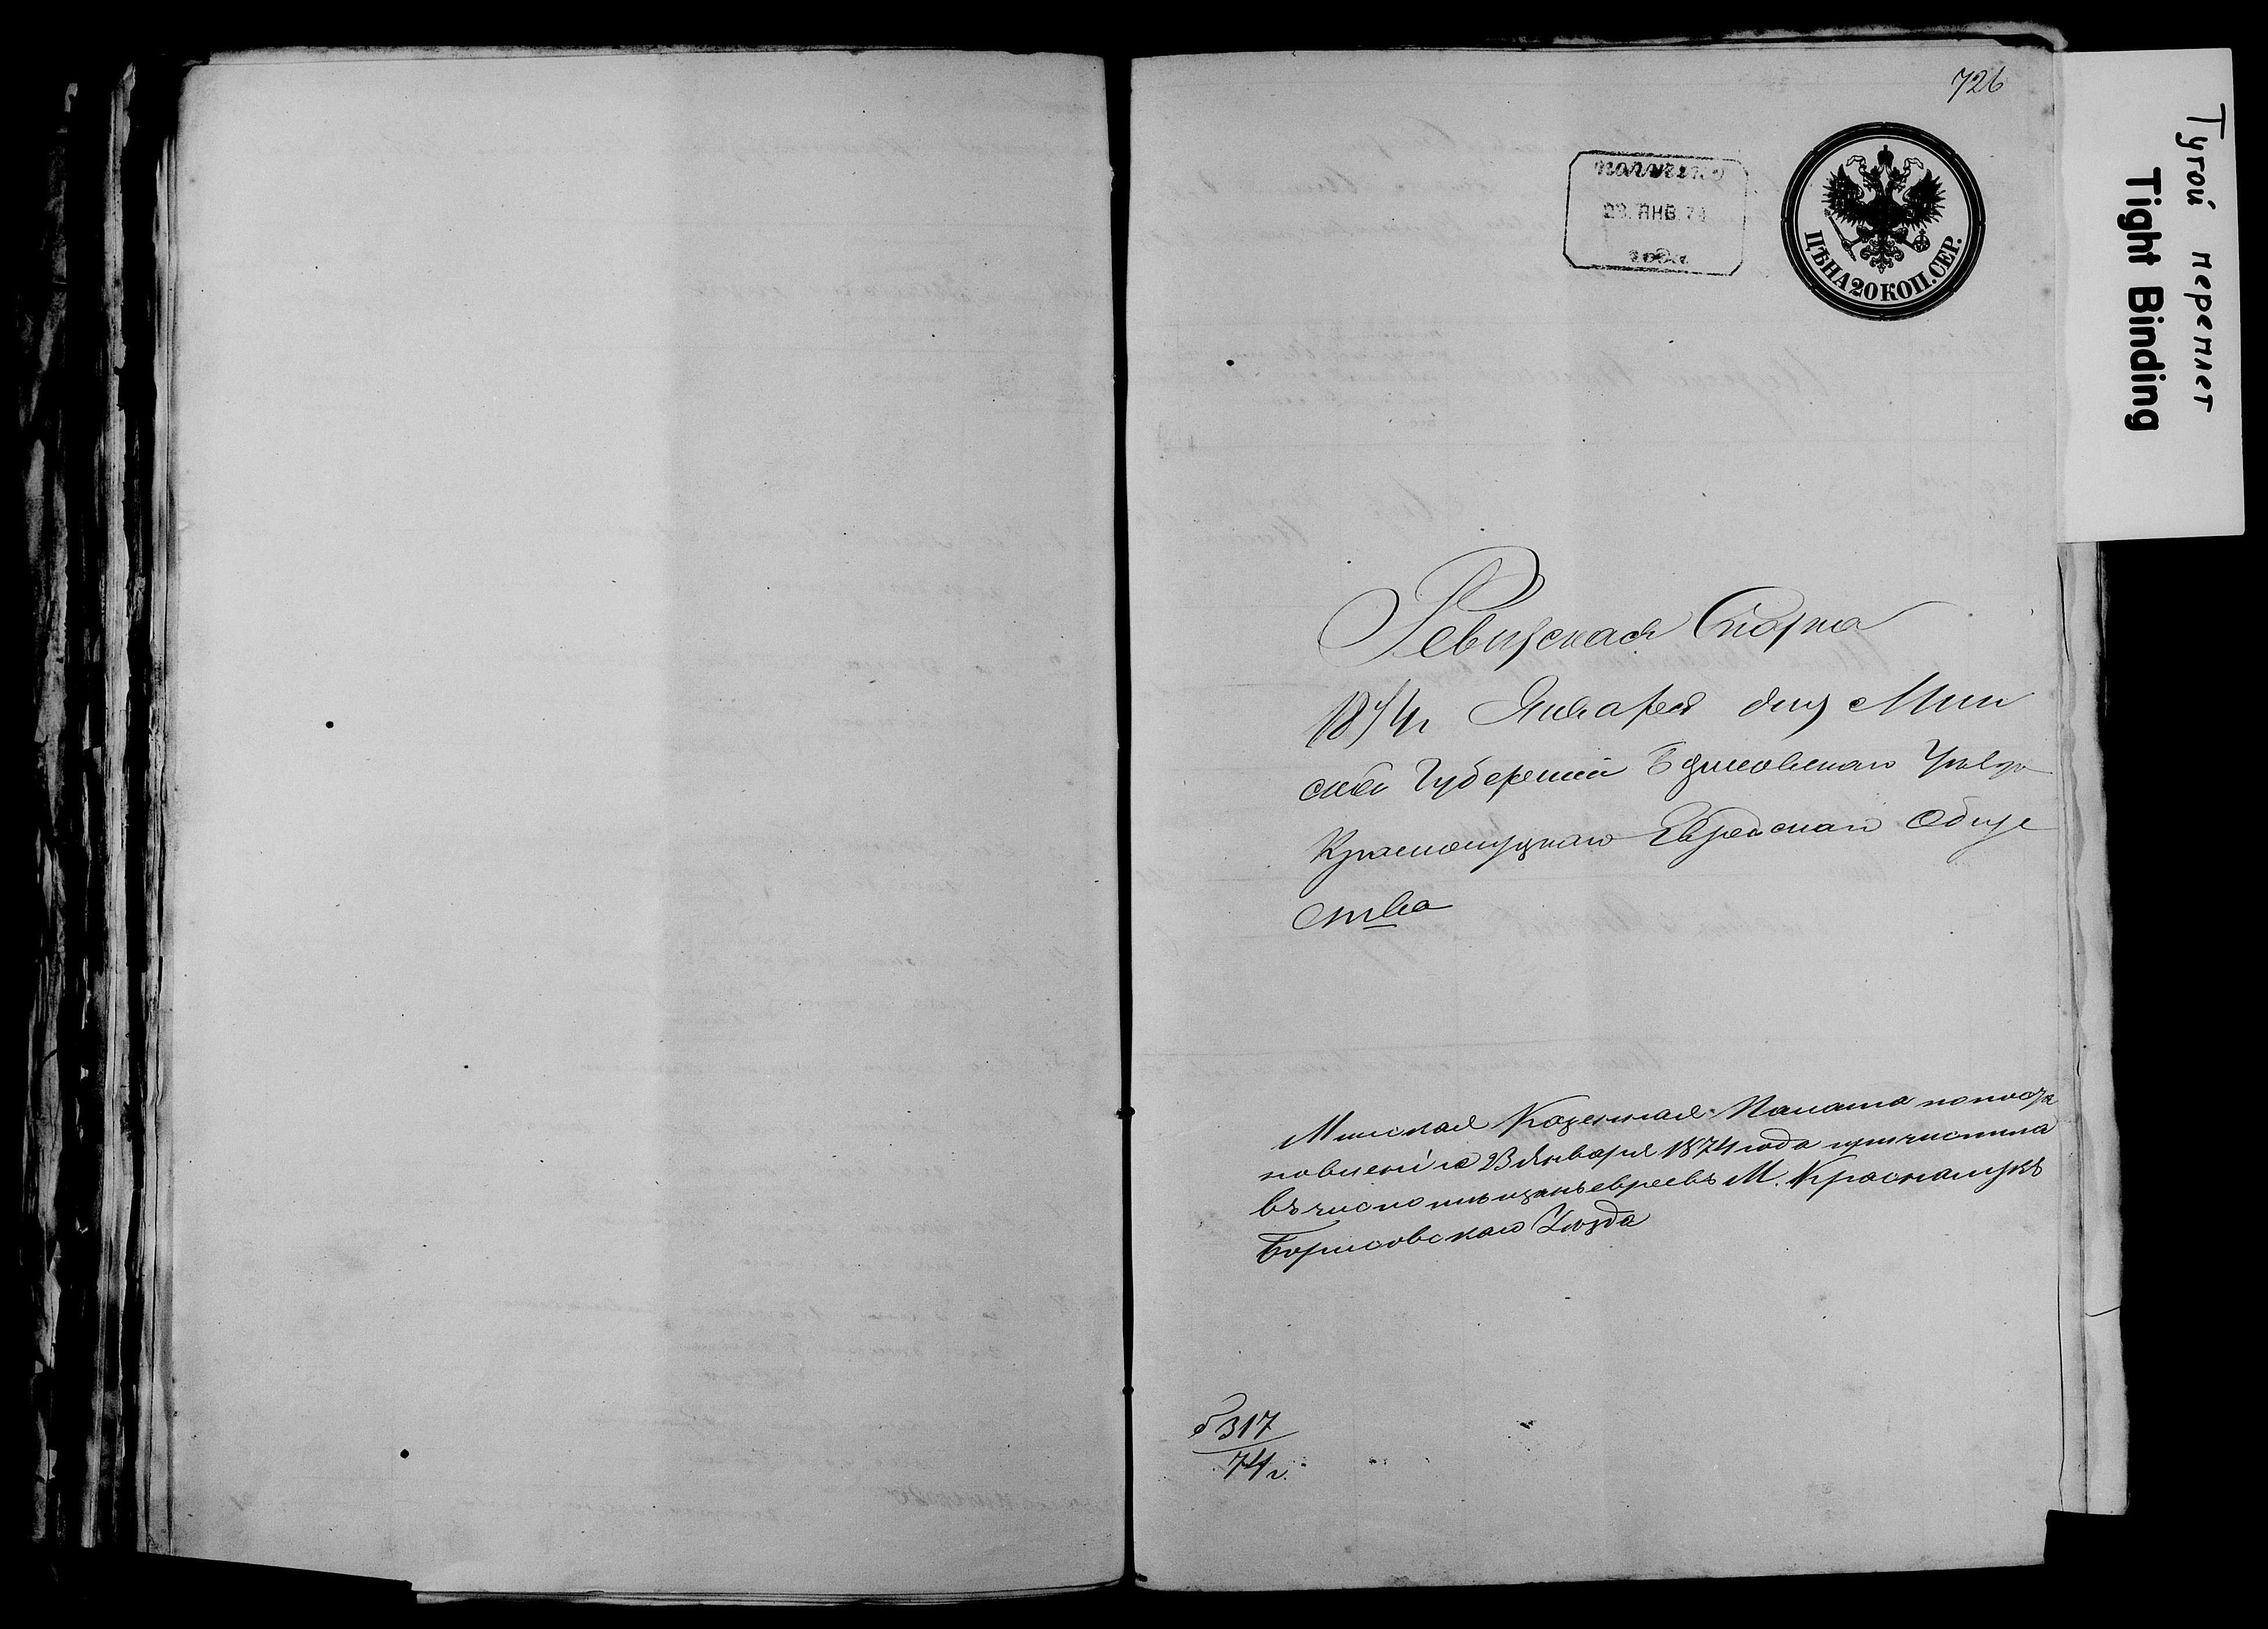 726
ПОЛУЧЕНО
23. ЯНВ. 74
ЦѢНА 20 КОП. СЕР.
Тугой переплет
Tight Binding
Ревизская Сказка
1874 г. Января дня Мин
ской Губернии Борисовскаго Уѣзда
Краснолуцкаго Еврейскаго Обще
ства
Минская Казенная Палата по поста
новленiю 23 Января 1874 года причислила
въ число мѣщанъ евреевъ М. Краснолукъ
Борисовскаго Уѣзда
317
74 г.